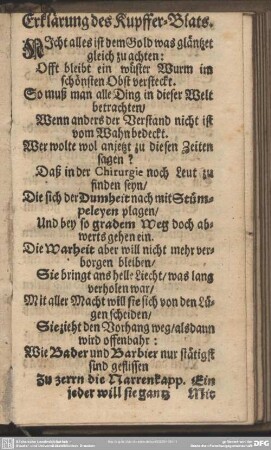 Erklärung des Kupffer-Blats.
Nicht alles ist dem Gold was gläntzet
gleich zu achten:
Offt bleibt ein wüster Wurm im
schönsten Obst versteckt.
So muß man alle Ding in dieser Welt
betrachten/
Wenn anders der Verstand nicht ist
vom Wahn bedeckt.
Wer wolte wol anjetzt zu diesen Zeiten
sagen?
Daß in der Chirurgie noch Leut zu
finden seyn/
Die sich der Dumheit nach mit Stüm-
peleyen plagen/
Und bey so gradem Weg doch ab-
werts gehen ein.
Die Warheit aber will nicht mehr ver-
borgen bleiben/
Sie bringt ans hell-Liecht/ was lang
verholen war/
Mit aller Macht will sie sich von den Lü-
gen scheiden/
Sie zieht den Vorhang weg/ alsdann
wird offenbahr:
Wie Bader und Barbier nur stätigst
sind geflissen
Zu zerrn die Narrenkapp. Ein
jeder will sie gantz
Mit